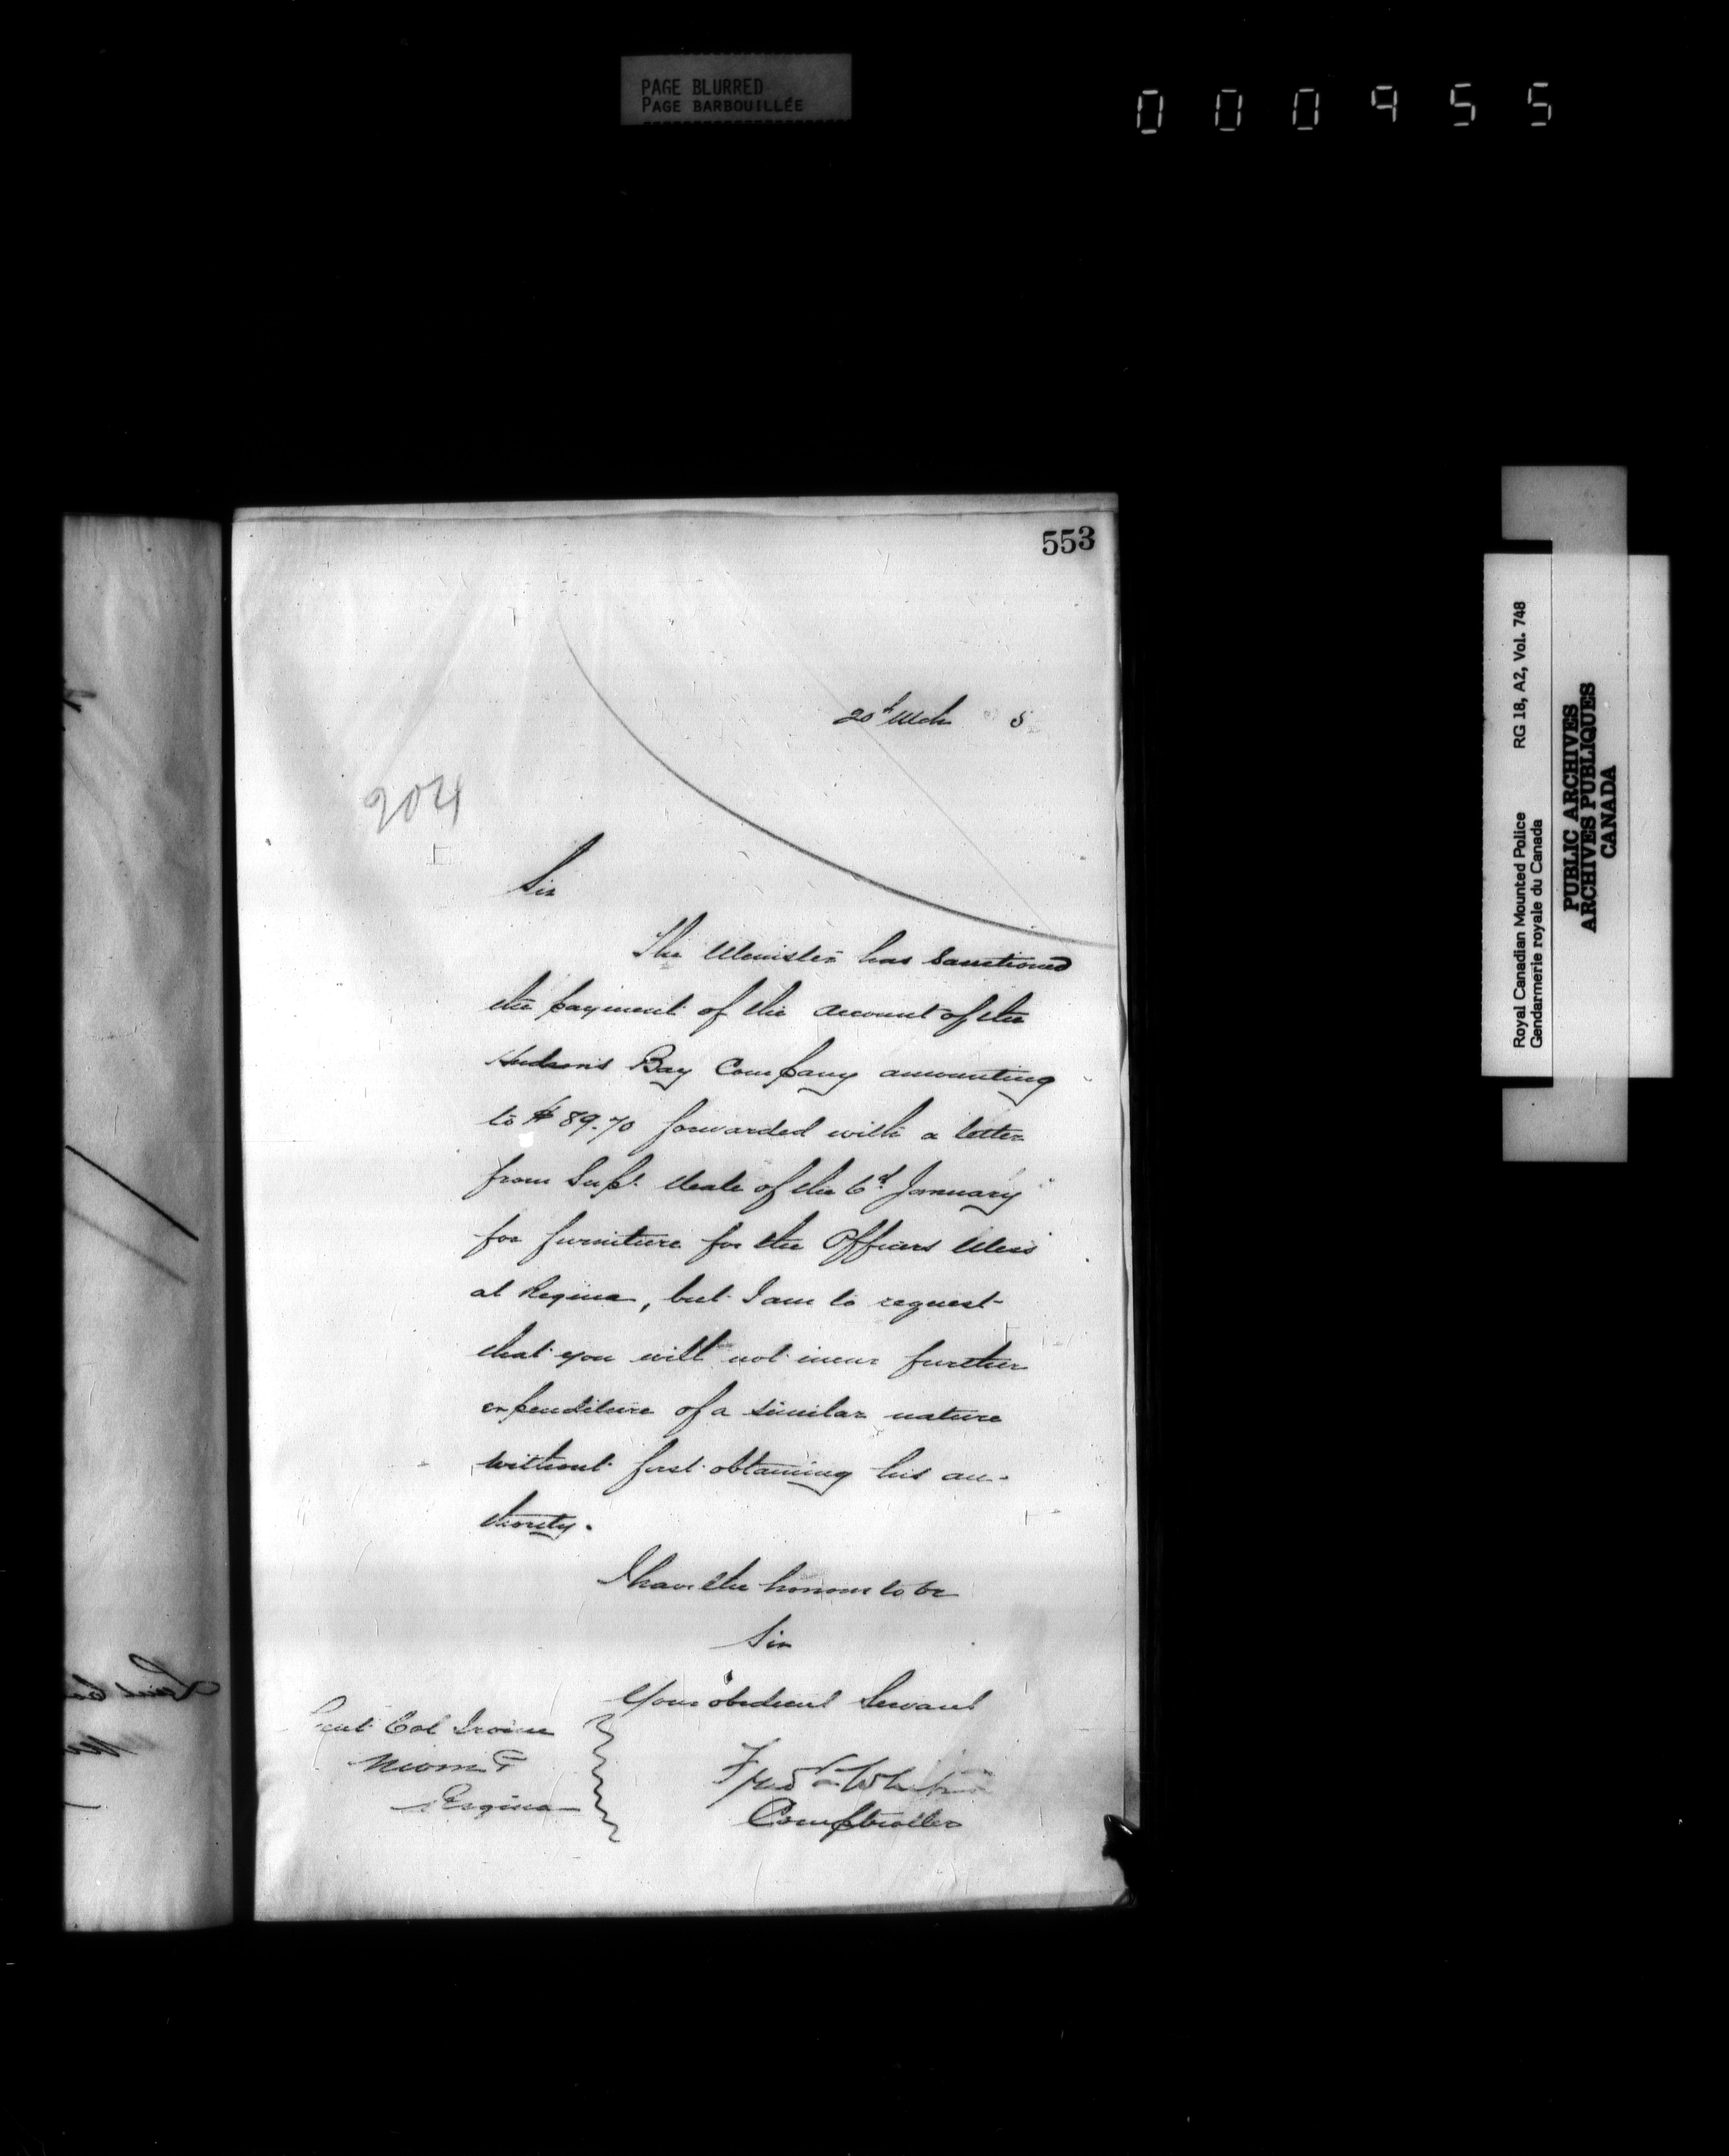 PAGE BLURRED
PAGE BARBOUILLÉE
000955
553
20th Mch 5
204
Sir
The Minister has sanctioned
the payment of the account of the
Hudson's Bay Company amounting
to $89.70 forwarded with a letter
from Supt. Neale of the 6th January
for furniture for the Officers Mess
at Regina, but I am to request
that you will not incur further
expenditure of a similar nature
without first obtaining his au-
thority.
I have the honour to be
Sir
Your obedient Servant
Lieut Col Irvine
Regina
Fred White
Comptroller
Royal Canadian Mounted Police RG 18, A2, Vol. 748
Gendarmerie royale du Canada
PUBLIC ARCHIVES
ARCHIVES PUBLIQUES
CANADA